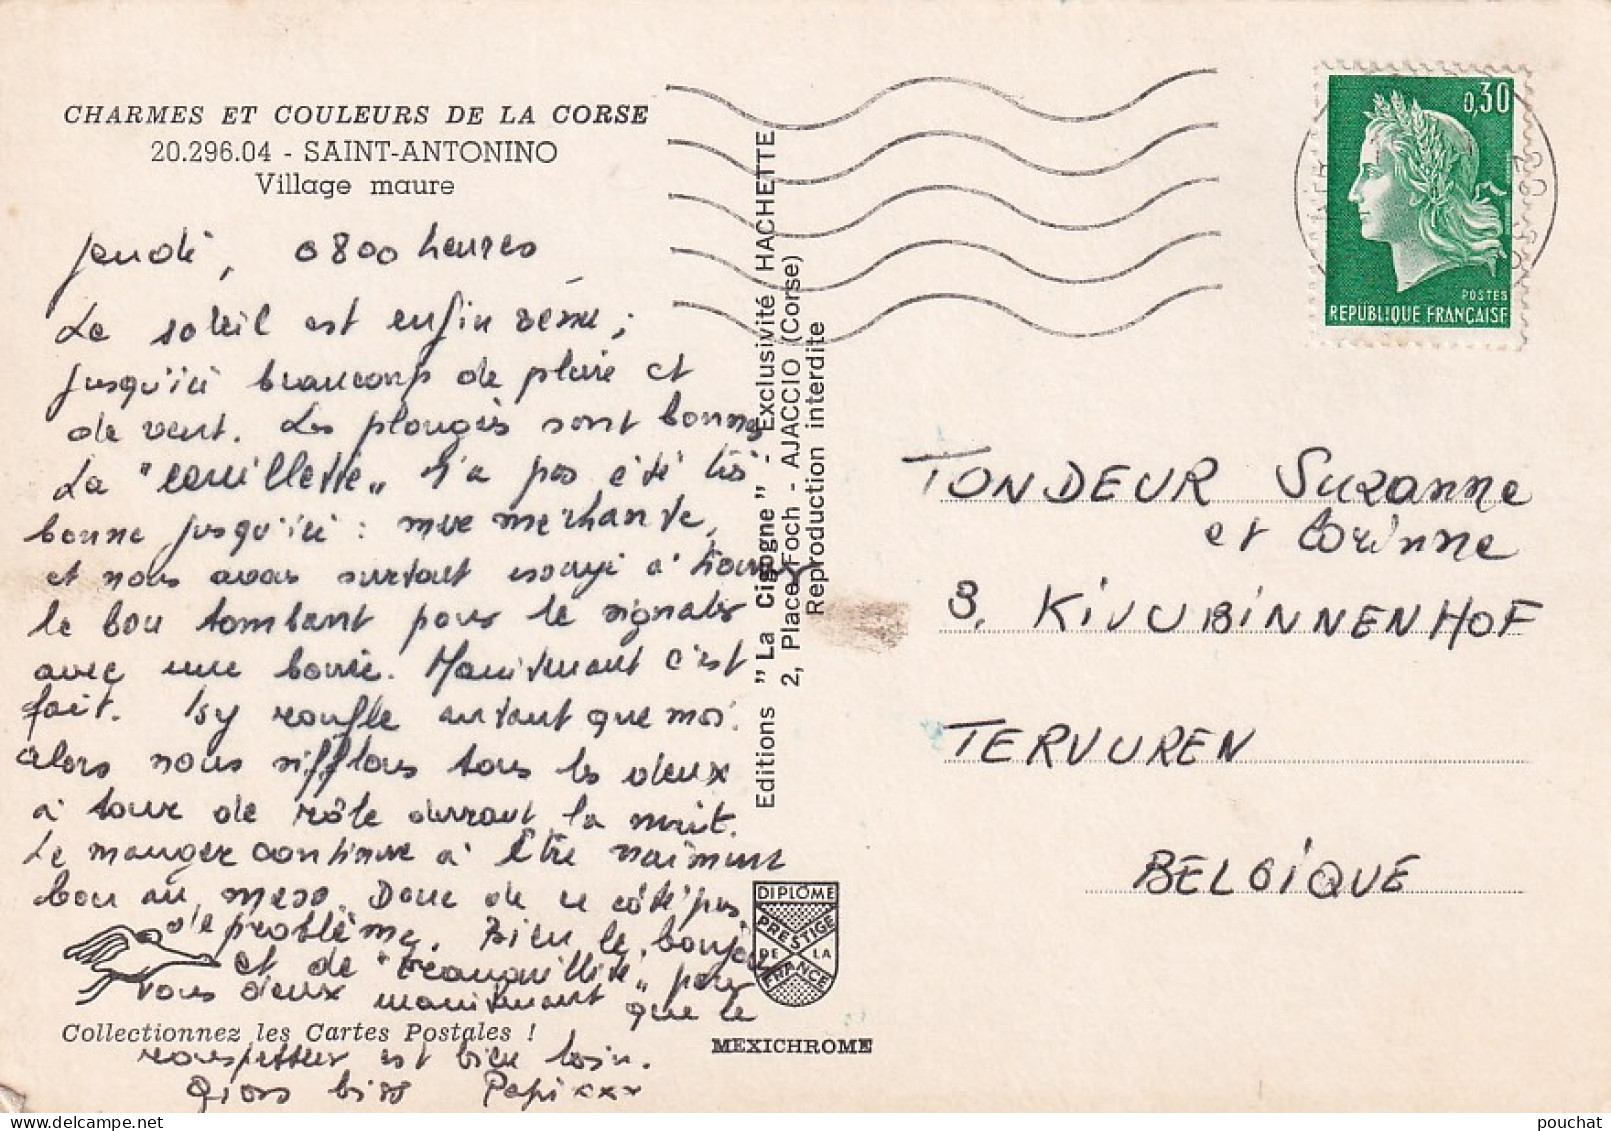 CHARMES ET COULEURS DE LA CORSE
20.296.04 - SAINT-ANTONINO
Village maure
Jeudi, 0800 heures
Le soleil est enfin
Jusqu'ici beaucoup de pluie et
de vent. Les plongées sont bonnes
La "cueillette" n'a pas été très
bonne jusqu'ici : mer méchante,
et nous avons surtout essayé à trouver
le bon tombant pour le signaler
avec une bouée. Maintenant c'est
fait. ronfle autant que moi.
alors nous sifflons tous les deux
à tour de rôle durant la nuit.
Le manger continue à être vraiment
bon au mess. Donc de ce côté pas
de problème. Bien le bonjour
et de "tranquillité" pour
vous deux maintenant que le
rouspetteur est bien loin.
Papi xxx
Collectionnez les Cartes Postales !
Editions "La Cigogne" - Exclusivité HACHETTE
2, Place Foch - AJACCIO (Corse)
Reproduction interdite
DIPLÔME
PRESTIGE
DE LA
FRANCE
MEXICHROME
0,30
POSTES
REPUBLIQUE FRANÇAISE
TONDEUR Suzanne
et Corinne
3, KIVUBINNENHOF
TERVUREN
BELGIQUE
pouchat